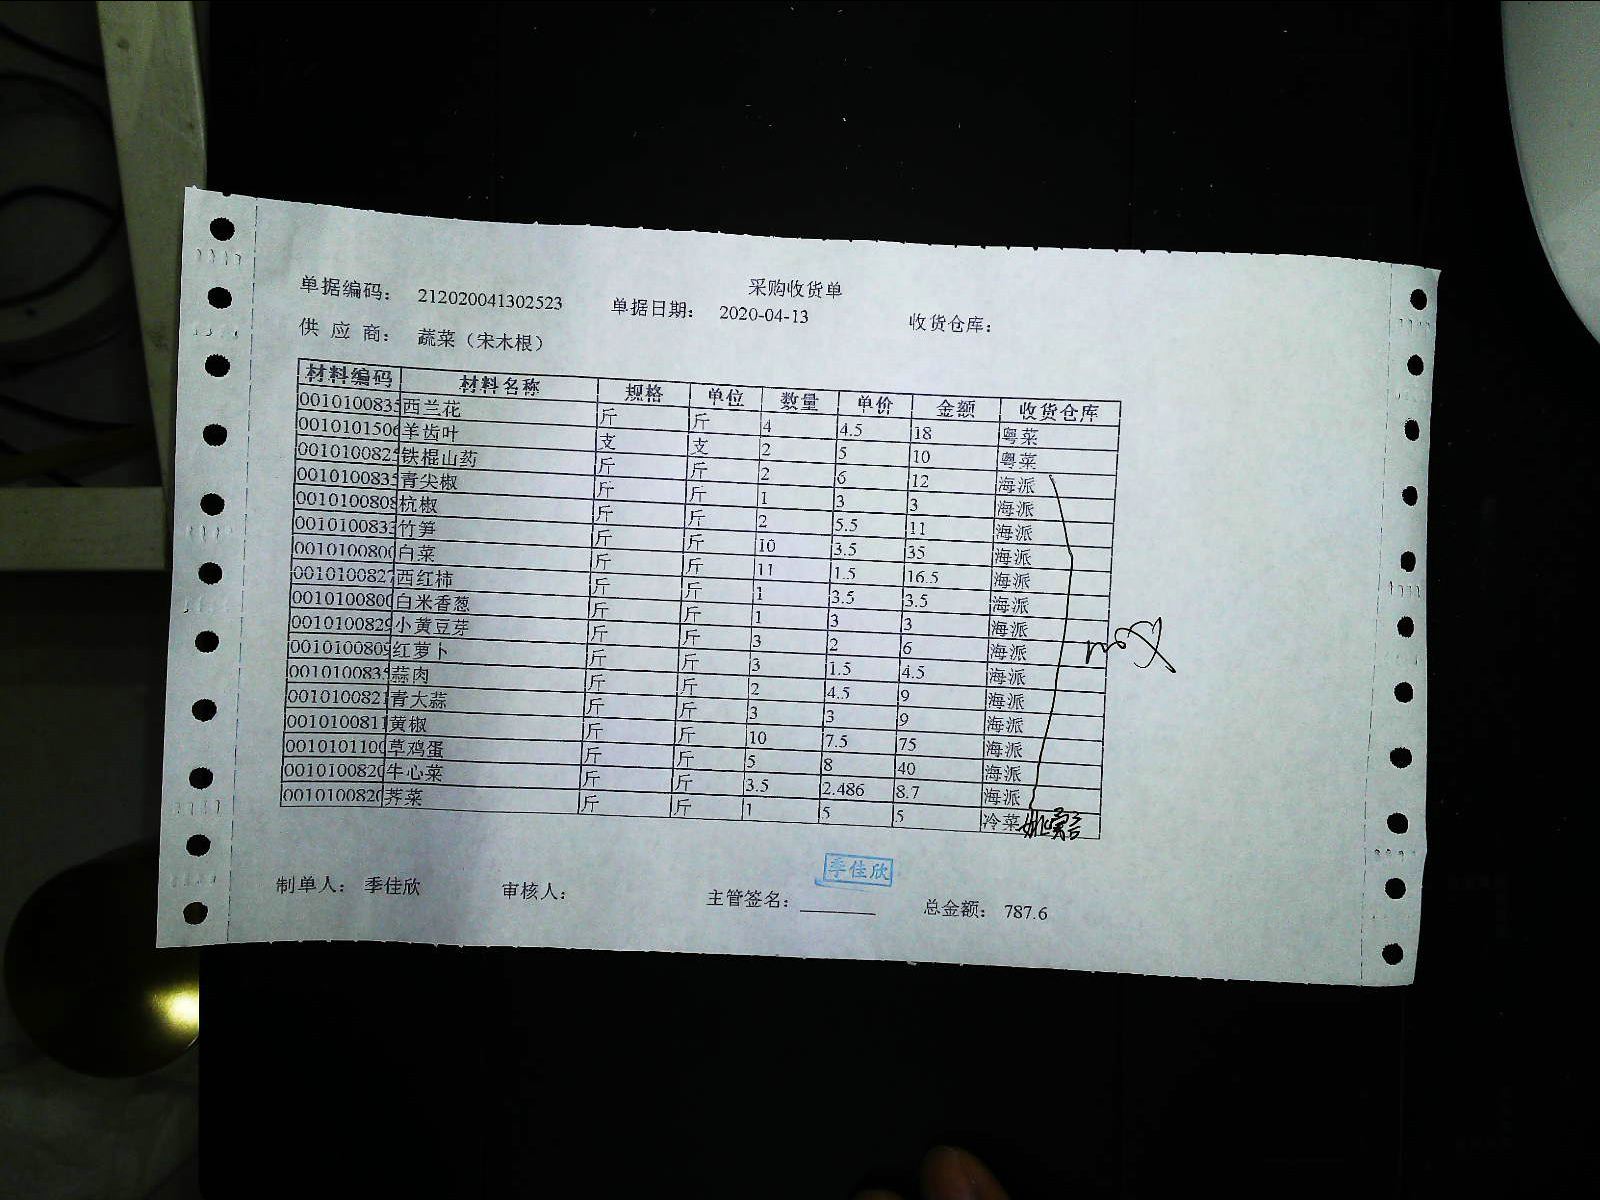 采购收货单
单据编码： 212020041302523 单据日期： 2020-04-13 收货仓库：
供 应 商： 蔬菜（宋木根）
材料编码 材料名称 规格 单位 数量 单价 金额 收货仓库
0010100835 西兰花 斤 斤 4 4.5 18 粤菜
0010101506 羊齿叶 支 支 2 5 10 粤菜
0010100825 铁棍山药 斤 斤 2 6 12 海派
0010100835 青尖椒 斤 斤 1 3 3 海派
0010100808 杭椒 斤 斤 2 5.5 11 海派
0010100833 竹笋 斤 斤 10 3.5 35 海派
0010100800 白菜 斤 斤 11 1.5 16.5 海派
0010100827 西红柿 斤 斤 1 3.5 3.5 海派
0010100800 白米香葱 斤 斤 1 3 3 海派
0010100829 小黄豆芽 斤 斤 3 2 6 海派
0010100809 红萝卜 斤 斤 3 1.5 4.5 海派
0010100835 蒜肉 斤 斤 2 4.5 9 海派
0010100821 青大蒜 斤 斤 3 3 9 海派
0010100811 黄椒 斤 斤 10 7.5 75 海派
0010101100 草鸡蛋 斤 斤 5 8 40 海派
0010100820 牛心菜 斤 斤 3.5 2.486 8.7 海派
0010100820 荠菜 斤 斤 1 5 5 冷菜
季佳欣
制单人： 季佳欣 审核人： 主管签名： 总金额： 787.6